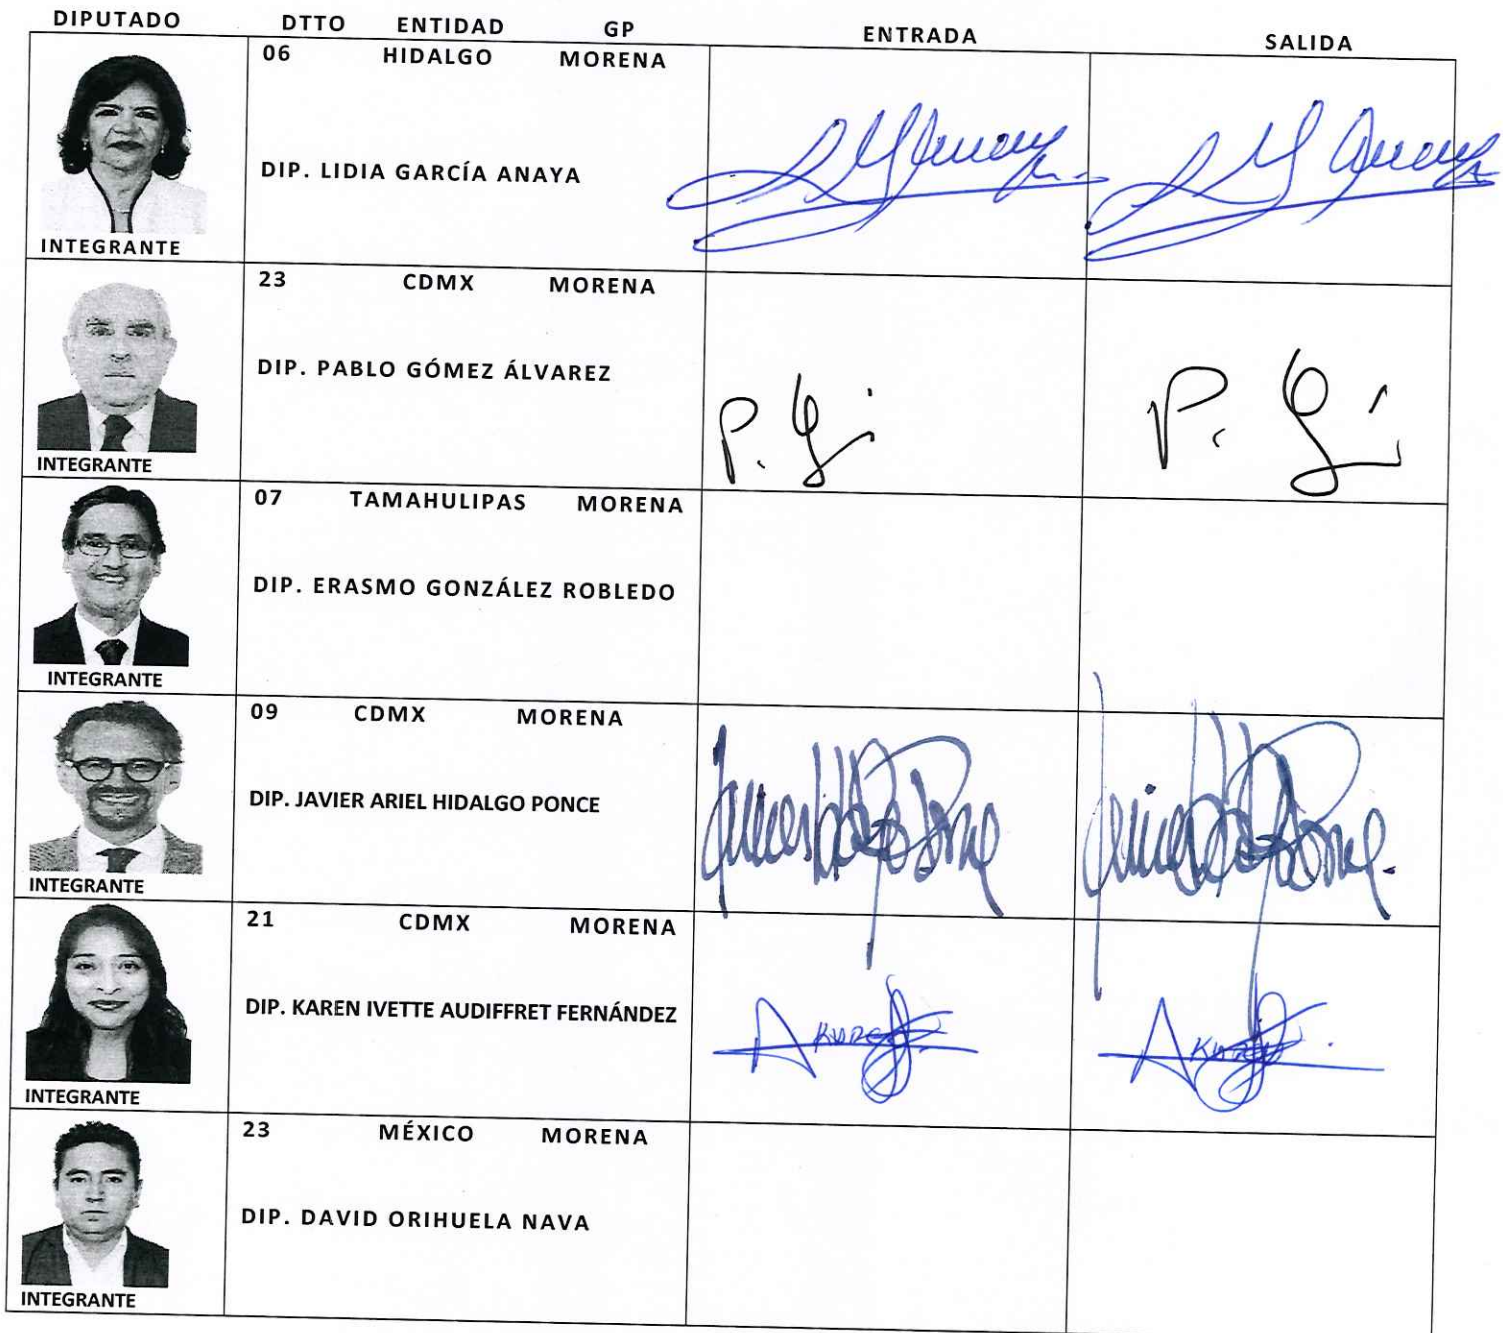 DIPUTADO DTTO ENTIDAD GP ENTRADA SALIDA
06 HIDALGO MORENA
DIP. LIDIA GARCÍA ANAYA
INTEGRANTE
23 CDMX MORENA
DIP. PABLO GÓMEZ ÁLVAREZ
P. G
P. G
INTEGRANTE
07 TAMAHULIPAS MORENA
DIP. ERASMO GONZÁLEZ ROBLEDO
INTEGRANTE
09 CDMX MORENA
DIP. JAVIER ARIEL HIDALGO PONCE
INTEGRANTE
21 CDMX MORENA
DIP. KAREN IVETTE AUDIFFRET FERNÁNDEZ
INTEGRANTE
23 MÉXICO MORENA
DIP. DAVID ORIHUELA NAVA
INTEGRANTE